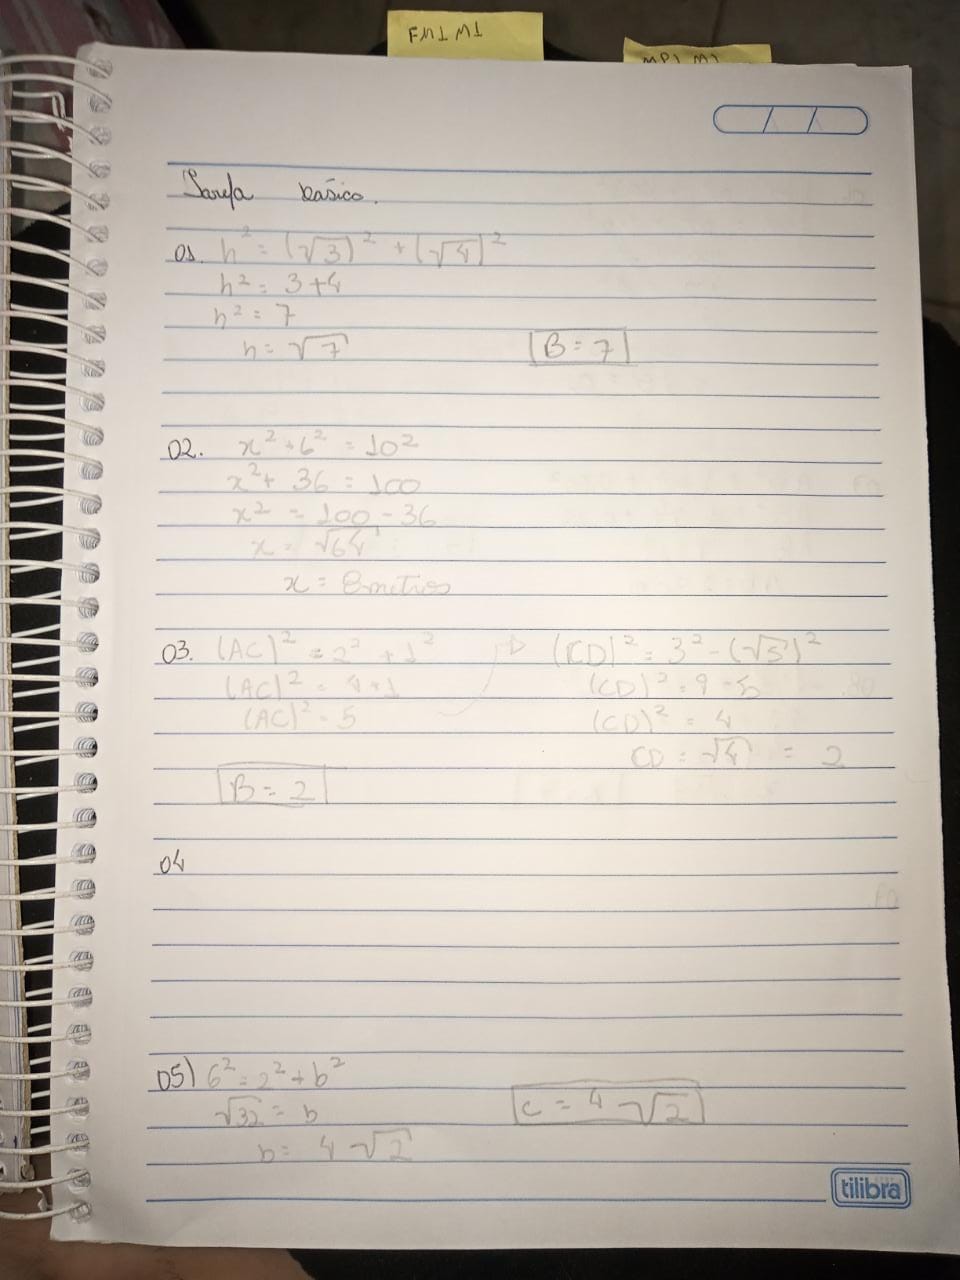 FM1 M1
MP1 M1
Tarefa básico.
01. h² = (√3)² + (√4)²
h² = 3+4
h² = 7
h = √7
B = 7
02. x² + 6² = 10²
x² + 36 = 100
x² = 100 - 36
x = √64
x = 8 metros
03. (AC)² = 2² + 1²
(AC)² = 4+1
(AC)² = 5
(CD)² = 3² - (√5)²
(CD)² = 9 - 5
(CD)² = 4
CD = √4 = 2
B = 2
04
05) 6² = 2² + b²
√32 = b
b = 4√2
C = 4√2
tilibra